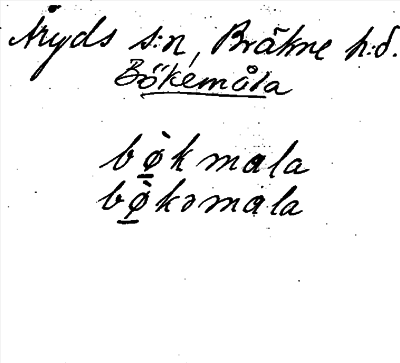 Åryds s:n, Bräkne h:d.
Bökemåla
bø̠̀kmala
bø̠̀kəmala